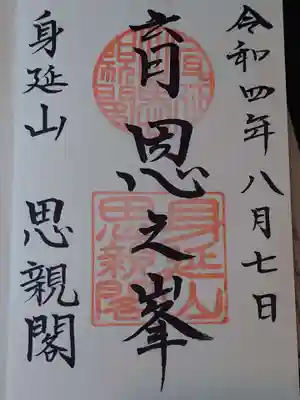 令和四年八月七日
育恩之峯
身延山
思親閣
身延山 思親閣